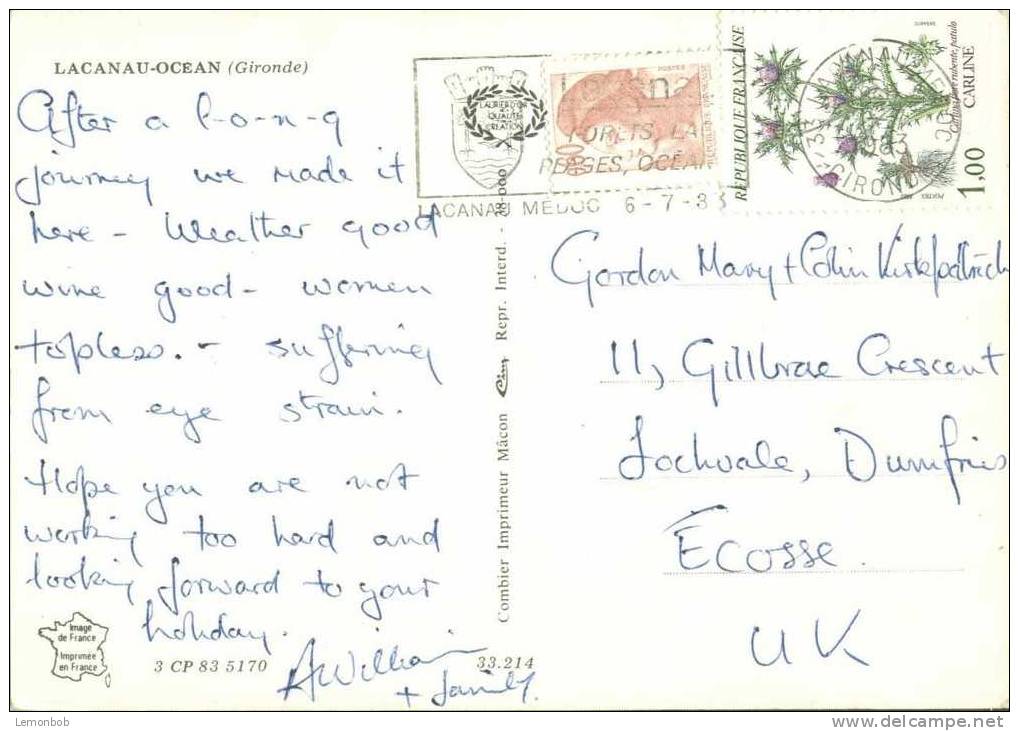 LACANAU-OCEAN (Gironde)
After a l-o-n-g
journey we made it
here - Weather good
wine good - women
topless. - suffering
from eye strain.
Hope you are not
working too hard and
looking forward to your
holiday.
+ family.
Image
de France
Imprimée
en France
3 CP 83 5170
33.214
Combier Imprimeur Mâcon Cim Repr. Interd. - 38-000
LAURIER D'OR
QUALITÉ
CREATION
FORETS, LA
BERGES, OCEAN
LACANAU MEDOC 6-7-83
POSTES
REPUBLIQUE FRANÇAISE
REPUBLIQUE FRANÇAISE
CARLINE
1,00
GIRONDE
Gordon Mary + Colin Kirkpatrick
11, Gillbrae Crescent
Lochvale, Dumfries
ECOSSE
UK
Lemonbob
www.delcampe.net